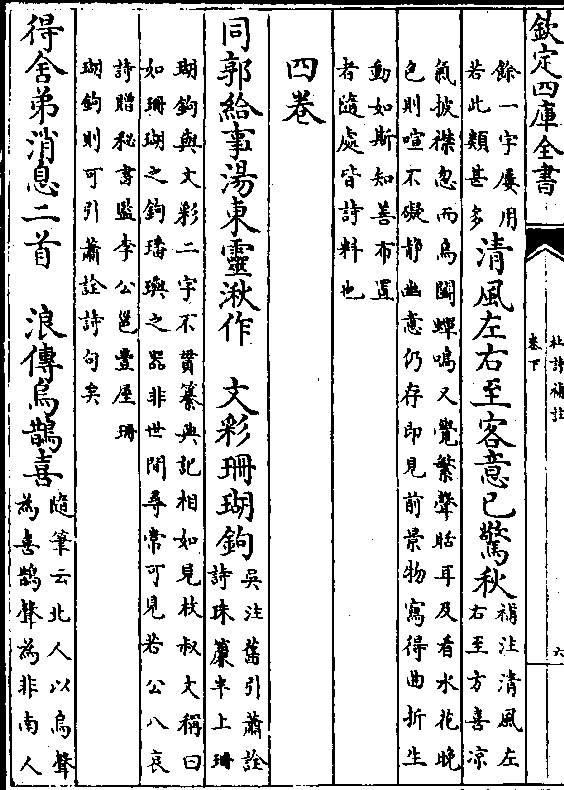 欽定四庫全書
杜詩補註
卷下
六
餘一字屢用
若此類甚多
清風左右至客意已驚秋
補注清風左
右至方喜涼
氣披襟忽而烏鬬蟬鳴又覺繁聲聒耳及看水花晚
色則喧不礙靜幽意仍存即見前景物寫得曲折生
動如斯知善布置
者隨處皆詩料也
四卷
同郭給事湯東靈湫作　文彩珊瑚鉤
吳注舊引蕭詮
詩珠簾半上珊
瑚鉤與文彩二字不貫纂典記相如見枚叔文稱曰
如珊瑚之鉤璠璵之器非世間尋常可見若公八哀
詩贈秘書監李公邕豐屋珊
瑚鉤則可引蕭詮詩句矣
得舍弟消息二首　浪傳烏鵲喜
隨筆云北人以烏聲
為喜鵲聲為非南人